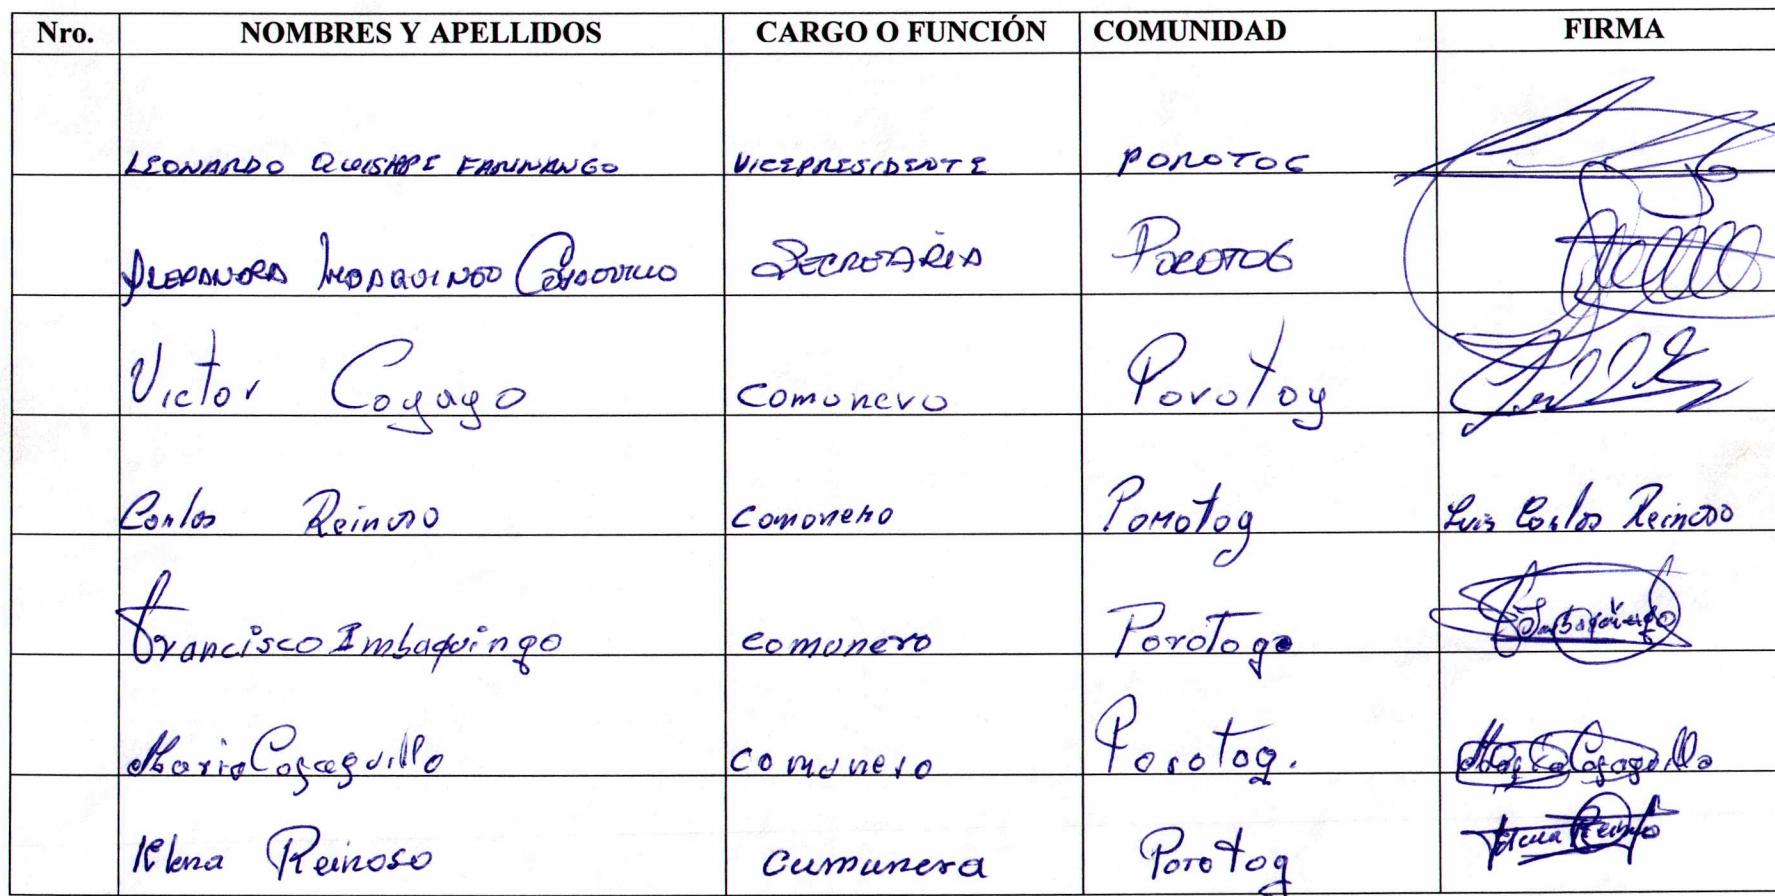 Nro. NOMBRES Y APELLIDOS CARGO O FUNCIÓN COMUNIDAD FIRMA
LEONARDO QUISHPE FARINANGO VICEPRESIDENTE POROTOG
ALEXANDRA IMBAQUINGO SECRETARIA POROTOG
Victor Coyago comonero Porotog
Carlos Reinoso comonero Porotog Luis Carlos Reinoso
Francisco Imbaquingo comunero Porotog Imbaquingo
Maria Cozaguillo comunero Porotog. Cozaguillo
Elena Reinoso cumunera Porotog Elena Reinoso